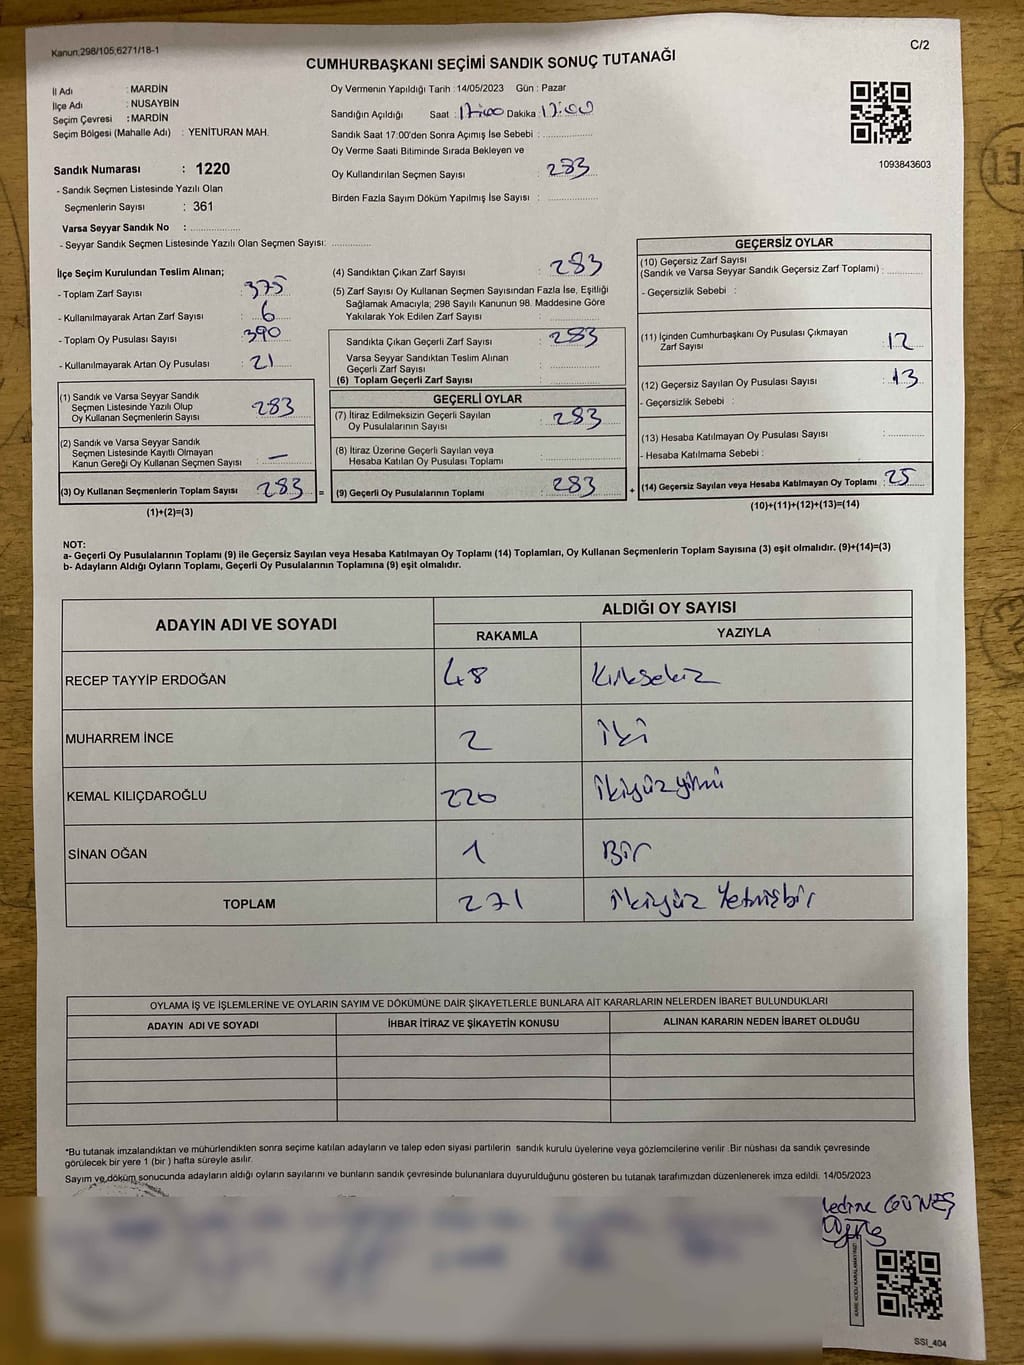 Kanun;298/105;6271/18-1
C/2
CUMHURBAŞKANI SEÇİMİ SANDIK SONUÇ TUTANAĞI
İl Adı : MARDİN
İlçe Adı : NUSAYBİN
Seçim Çevresi : MARDİN
Seçim Bölgesi (Mahalle Adı) : YENİTURAN MAH.
Sandık Numarası : 1220
- Sandık Seçmen Listesinde Yazılı Olan
Seçmenlerin Sayısı : 361
Varsa Seyyar Sandık No :
- Seyyar Sandık Seçmen Listesinde Yazılı Olan Seçmen Sayısı:
Oy Vermenin Yapıldığı Tarih : 14/05/2023 Gün : Pazar
Sandığın Açıldığı Saat : 17:00 Dakika : 17:00
Sandık Saat 17:00'den Sonra Açımış İse Sebebi :
Oy Verme Saati Bitiminde Sırada Bekleyen ve
Oy Kullandırılan Seçmen Sayısı : 283
Birden Fazla Sayım Döküm Yapılmış İse Sayısı :
1093843603
İlçe Seçim Kurulundan Teslim Alınan;
- Toplam Zarf Sayısı : 375
- Kullanılmayarak Artan Zarf Sayısı : 6
- Toplam Oy Pusulası Sayısı : 390
- Kullanılmayarak Artan Oy Pusulası : 21
(1) Sandık ve Varsa Seyyar Sandık
Seçmen Listesinde Yazılı Olup
Oy Kullanan Seçmenlerin Sayısı : 283
(2) Sandık ve Varsa Seyyar Sandık
Seçmen Listesinde Kayıtlı Olmayan
Kanun Gereği Oy Kullanan Seçmen Sayısı : —
(3) Oy Kullanan Seçmenlerin Toplam Sayısı : 283 =
(1)+(2)=(3)
(4) Sandıktan Çıkan Zarf Sayısı : 283
(5) Zarf Sayısı Oy Kullanan Seçmen Sayısından Fazla İse, Eşitliği
Sağlamak Amacıyla; 298 Sayılı Kanunun 98. Maddesine Göre
Yakılarak Yok Edilen Zarf Sayısı :
Sandıkta Çıkan Geçerli Zarf Sayısı : 283
Varsa Seyyar Sandıktan Teslim Alınan
Geçerli Zarf Sayısı :
(6) Toplam Geçerli Zarf Sayısı :
GEÇERLİ OYLAR
(7) İtiraz Edilmeksizin Geçerli Sayılan
Oy Pusulalarının Sayısı : 283
(8) İtiraz Üzerine Geçerli Sayılan veya
Hesaba Katılan Oy Pusulası Toplamı :
(9) Geçerli Oy Pusulalarının Toplamı : 283 +
GEÇERSİZ OYLAR
(10) Geçersiz Zarf Sayısı
(Sandık ve Varsa Seyyar Sandık Geçersiz Zarf Toplamı) :
- Geçersizlik Sebebi :
(11) İçinden Cumhurbaşkanı Oy Pusulası Çıkmayan
Zarf Sayısı : 12
(12) Geçersiz Sayılan Oy Pusulası Sayısı : 13
- Geçersizlik Sebebi :
(13) Hesaba Katılmayan Oy Pusulası Sayısı :
- Hesaba Katılmama Sebebi :
(14) Geçersiz Sayılan veya Hesaba Katılmayan Oy Toplamı : 25
(10)+(11)+(12)+(13)=(14)
NOT:
a- Geçerli Oy Pusulalarının Toplamı (9) ile Geçersiz Sayılan veya Hesaba Katılmayan Oy Toplamı (14) Toplamları, Oy Kullanan Seçmenlerin Toplam Sayısına (3) eşit olmalıdır. (9)+(14)=(3)
b- Adayların Aldığı Oyların Toplamı, Geçerli Oy Pusulalarının Toplamına (9) eşit olmalıdır.
ADAYIN ADI VE SOYADI
ALDIĞI OY SAYISI
RAKAMLA
YAZIYLA
RECEP TAYYİP ERDOĞAN 48 Kırksekiz
MUHARREM İNCE 2 iki
KEMAL KILIÇDAROĞLU 220 ikiyüzyirmi
SİNAN OĞAN 1 Bir
TOPLAM 271 ikiyüz Yetmişbir
OYLAMA İŞ VE İŞLEMLERİNE VE OYLARIN SAYIM VE DÖKÜMÜNE DAİR ŞİKAYETLERLE BUNLARA AİT KARARLARIN NELERDEN İBARET BULUNDUKLARI
ADAYIN ADI VE SOYADI
İHBAR İTİRAZ VE ŞİKAYETİN KONUSU
ALINAN KARARIN NEDEN İBARET OLDUĞU
*Bu tutanak imzalandıktan ve mühürlendikten sonra seçime katılan adayların ve talep eden siyasi partilerin sandık kurulu üyelerine veya gözlemcilerine verilir .Bir nüshası da sandık çevresinde
görülecek bir yere 1 (bir ) hafta süreyle asılır.
Sayım ve döküm sonucunda adayların aldığı oyların sayılarını ve bunların sandık çevresinde bulunanlara duyurulduğunu gösteren bu tutanak tarafımızdan düzenlenerek imza edildi. 14/05/2023
GÜNEŞ
KARE KODU KARALAMAYINIZ!
SSI_404